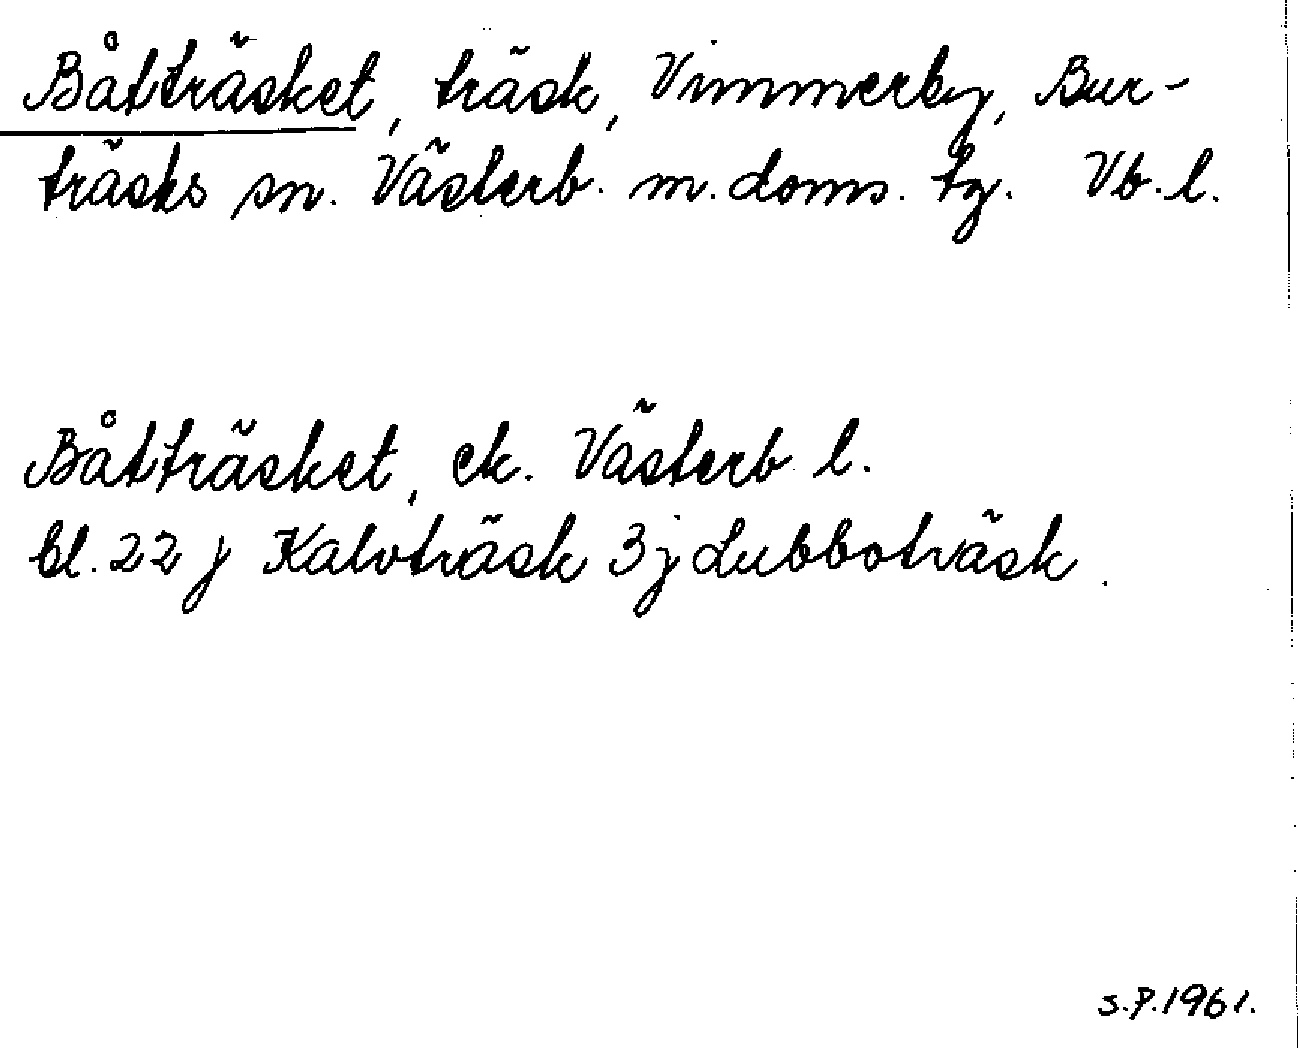 Båtträsket, träsk, Vimmerby, Bur-
träsks sn. Västerb. m. doms. tg. Vb. l.
Båtträsket, ek. Västerb l.
bl. 22 j Kalvträsk 3 j Lubboträsk.
S.P. 1961.